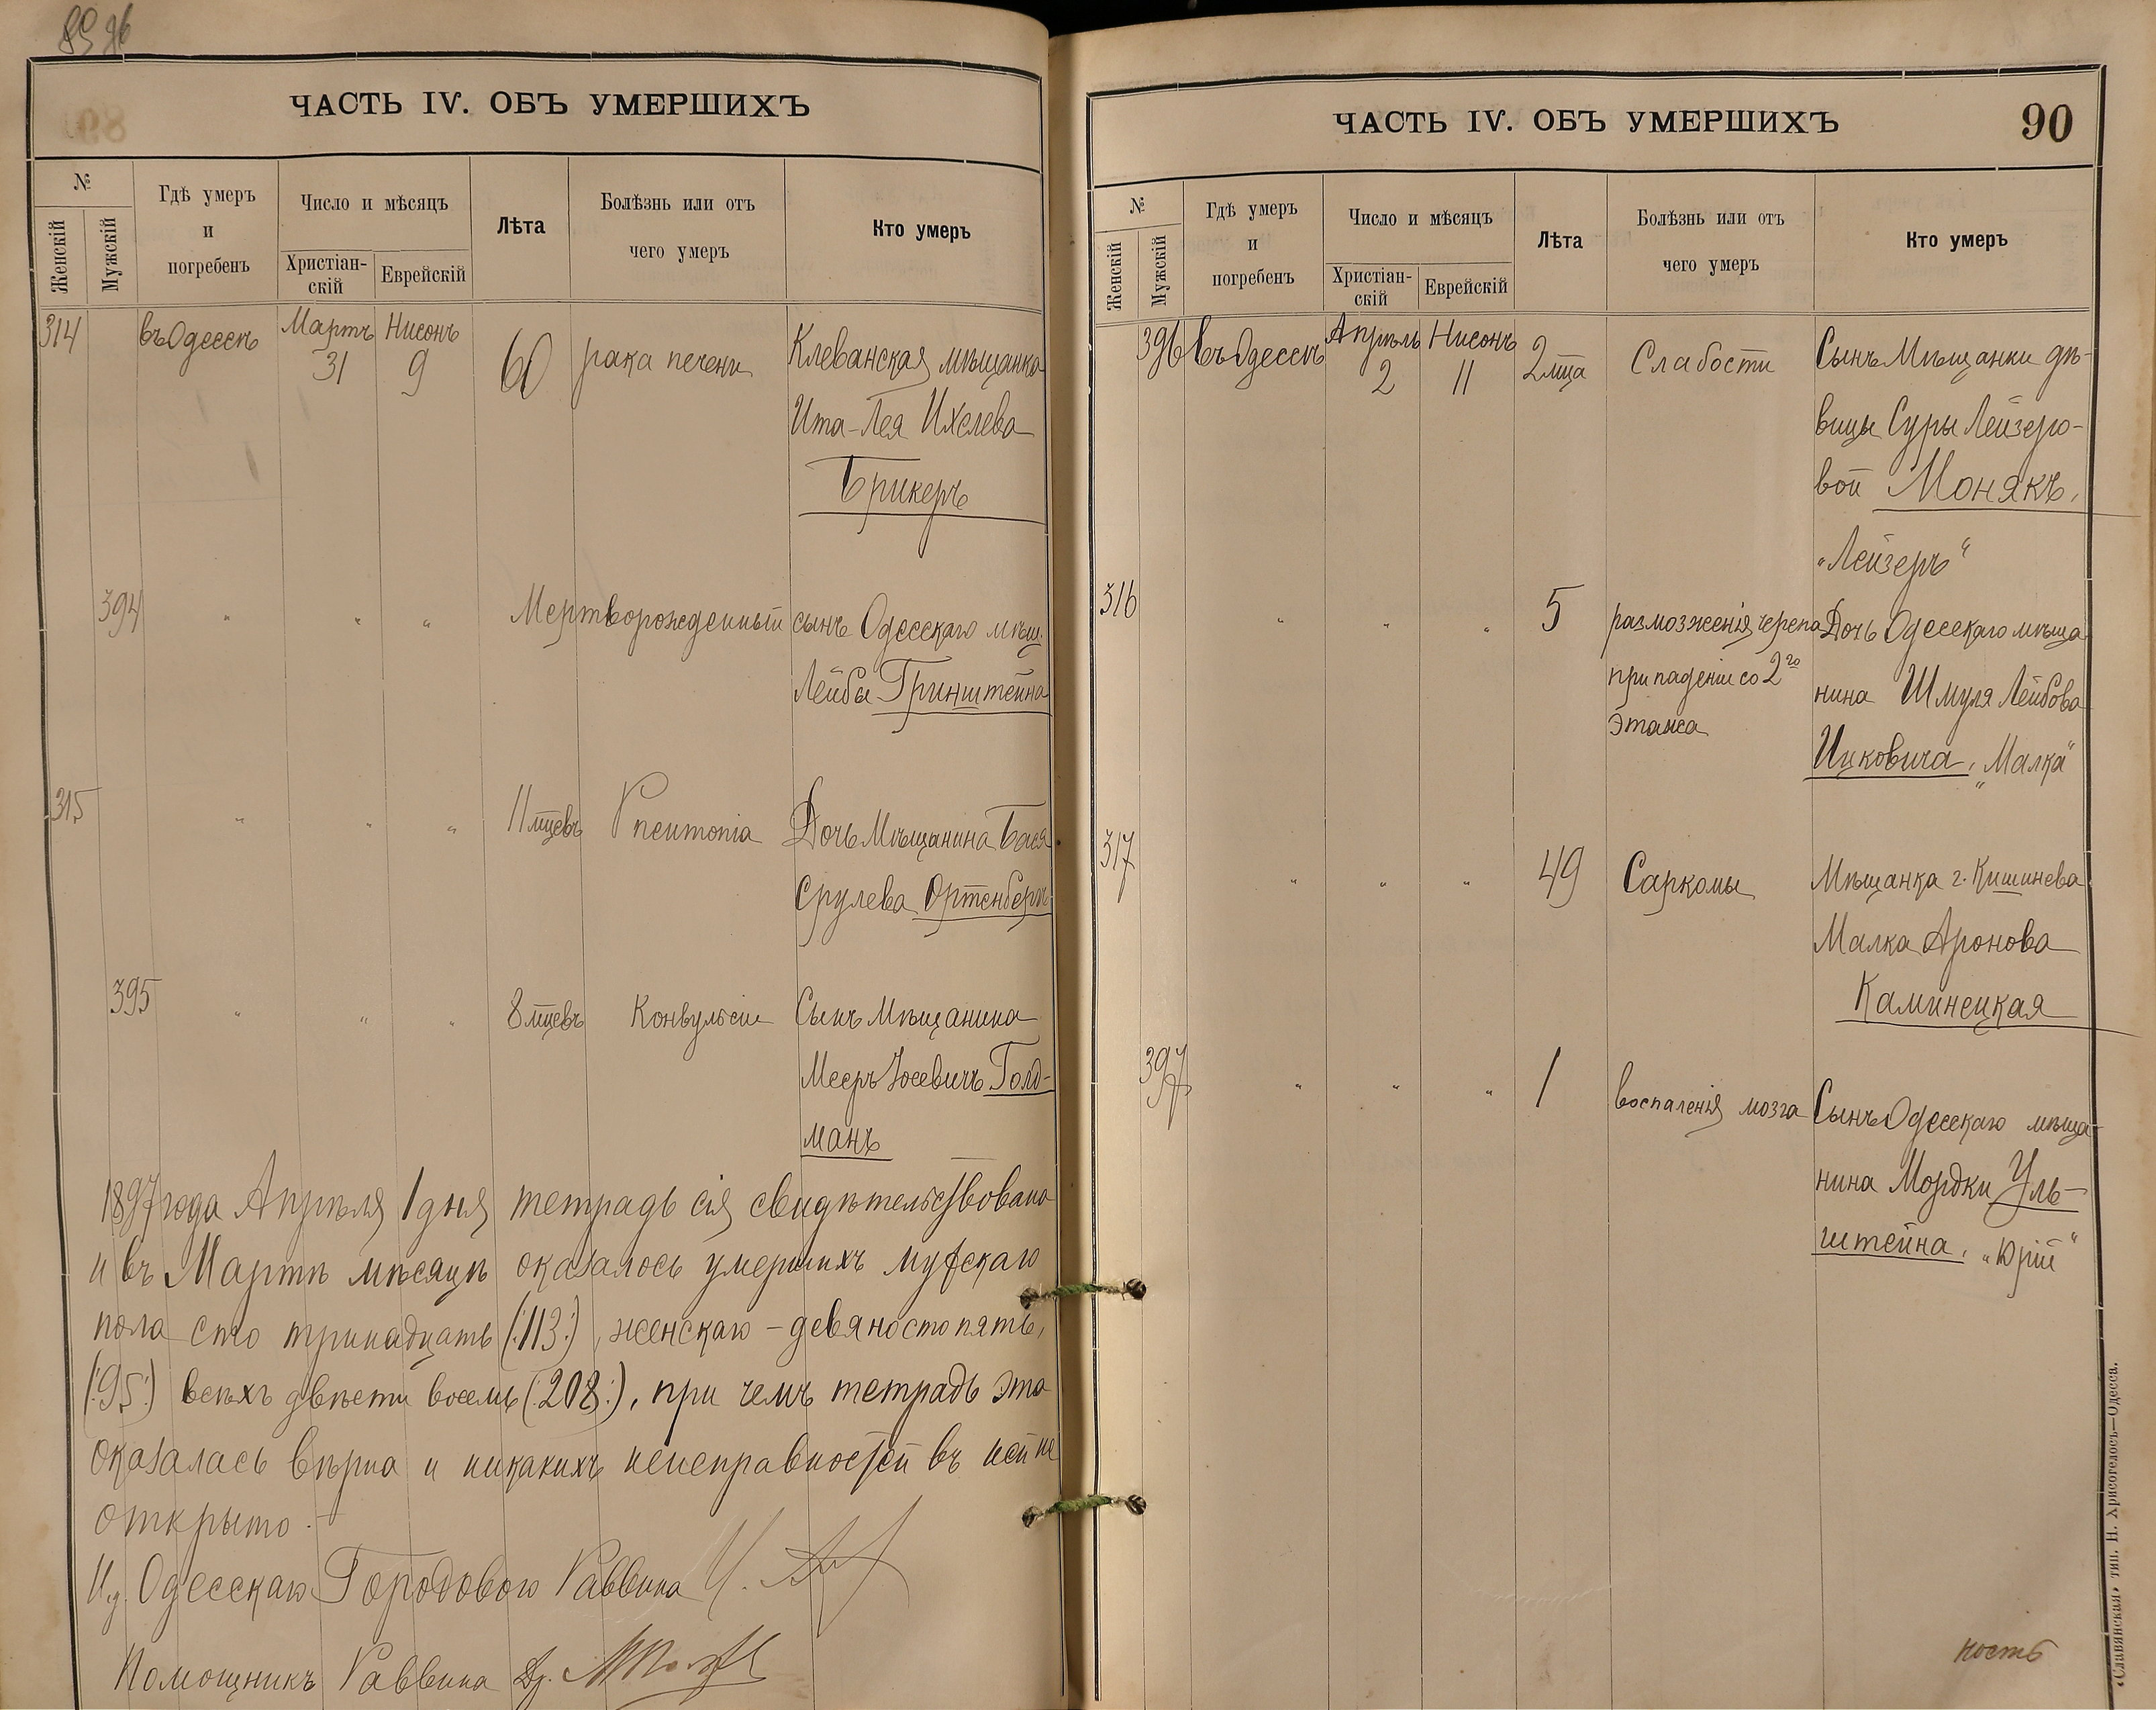 89 96
ЧАСТЬ IV. ОБЪ УМЕРШИХЪ
№
Женскій
Мужскій
Гдѣ умеръ
и
погребенъ
Число и мѣсяцъ
Христіан-
скій
Еврейскій
Лѣта
Болѣзнь или отъ
чего умеръ
Кто умеръ
314 въ Одессѣ Мартъ 31 Нисонъ 9 60 рака печени Клеванская мѣщанка
Ита-Лея Ихелева
Брикеръ
394 " " " Мертворожденный сынъ Одесскаго мѣщ.
Лейбы Гринштейна
315 " " " 11 мцевъ Pneumonia Дочь Мѣщанина Бася
Срулева Ортенбергъ
395 " " " 8 мцевъ Конвульсіи Сынъ Мѣщанина
Мееръ Іосевичъ Голд-
манъ
1897 года Апрѣля 1 дня тетрадь сія свидѣтельствована
и въ Мартѣ мѣсяцѣ оказалось умершихъ мужскаго
пола сто тринадцать (:113:), женскаго - девяносто пять,
(:95:) всѣхъ двѣсти восемь (:208:), при чемъ тетрадь эта
оказалась вѣрна и никакихъ неисправностей въ ней не
открыто.-
И.д. Одесскаго Городового Раввина
Помощникъ Раввина Др.
ЧАСТЬ IV. ОБЪ УМЕРШИХЪ
90
№
Женскій
Мужскій
Гдѣ умеръ
и
погребенъ
Число и мѣсяцъ
Христіан-
скій
Еврейскій
Лѣта
Болѣзнь или отъ
чего умеръ
Кто умеръ
396 въ Одессѣ Апрѣль 2 Нисонъ 11 2 мца Слабости Сынъ Мѣщанки дѣ-
вицы Суры Лейзеро-
вой Монякъ,
"Лейзеръ"
316 " " " 5 размозженія черепа Дочь Одесскаго мѣща
при паденіи со 2го нина Шмуля Лейбова
этажа Ицковича, "Малка"
317 " " " 49 Саркомы Мѣщанка г. Кишинева
Малка Аронова
Каминецкая
397 " " " 1 воспаленія мозга Сынъ Одесскаго мѣща-
нина Мордки Уль-
штейна, "Юрій"
ность
«Славянская» тип. Н. Хрисогелосъ—Одесса.